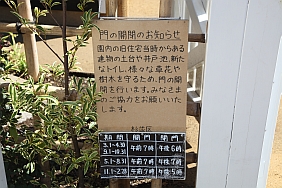 門の開閉のお知らせ
園内の旧住宅当時からある
建物の土台や井戸、池、新た
なトイレ、様々な草花や
樹木を守るため、門の開
閉を行います。みなさま
のご協力をお願いいた
します。
期間 開門 閉門
3.1-4.30
9.1-10.31 午前7時 午後6時
5.1-8.31 午前7時 午後7時
11.1-2.28 午前7時 午後5時